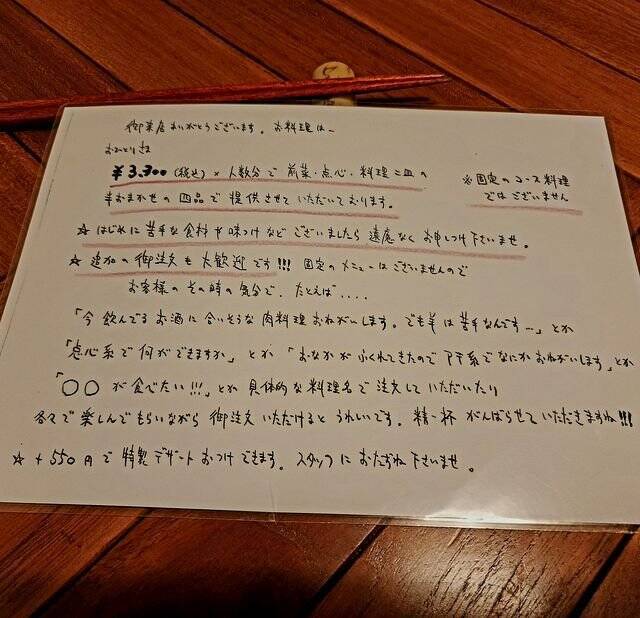 御来店ありがとうございます。お料理は〜
おひとりさま
¥3,300(税込)×人数分で 前菜・点心・料理二皿の
半おまかせの四品で提供させていただいております。
※固定のコース料理
ではございません
☆はじめに苦手な食材や味つけなどございましたら遠慮なくお申しつけ下さいませ。
☆追加の御注文も大歓迎です!!! 固定のメニューはございませんので
お客様のその時の気分で、たとえば....
「今飲んでるお酒に合いそうな肉料理おねがいします。でも羊は苦手なんです…」とか
「点心系で何ができますか」とか「おなかがふくれてきたのでアテ系でなにかおねがいします」とか
「〇〇が食べたい!!!」とか具体的な料理名で注文していただいたり
各々で楽しんでもらいながら御注文いただけるとうれしいです。精一杯がんばらせていただきますね!!!
☆+550円で特製デザートおつけできます。スタッフにおたずね下さいませ。